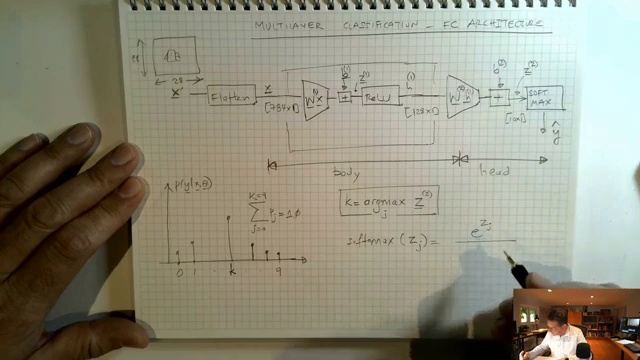 MULTILAYER CLASSIFICATION - FC ARCHITECTURE
28
28
X'
Flatten
x
[784x1]
W⁽¹⁾x
b⁽¹⁾
+
z⁽¹⁾
ReLU
h⁽¹⁾
[128x1]
W⁽²⁾h⁽¹⁾
b⁽²⁾
+
z⁽²⁾
[10x1]
SOFT
MAX
ŷ
body
head
p(y|x,θ)
K=9
Σ Pj = 1.0
j=0
0 1 . k . 9
K = argmax z⁽²⁾
j
softmax (zj) = e^zj